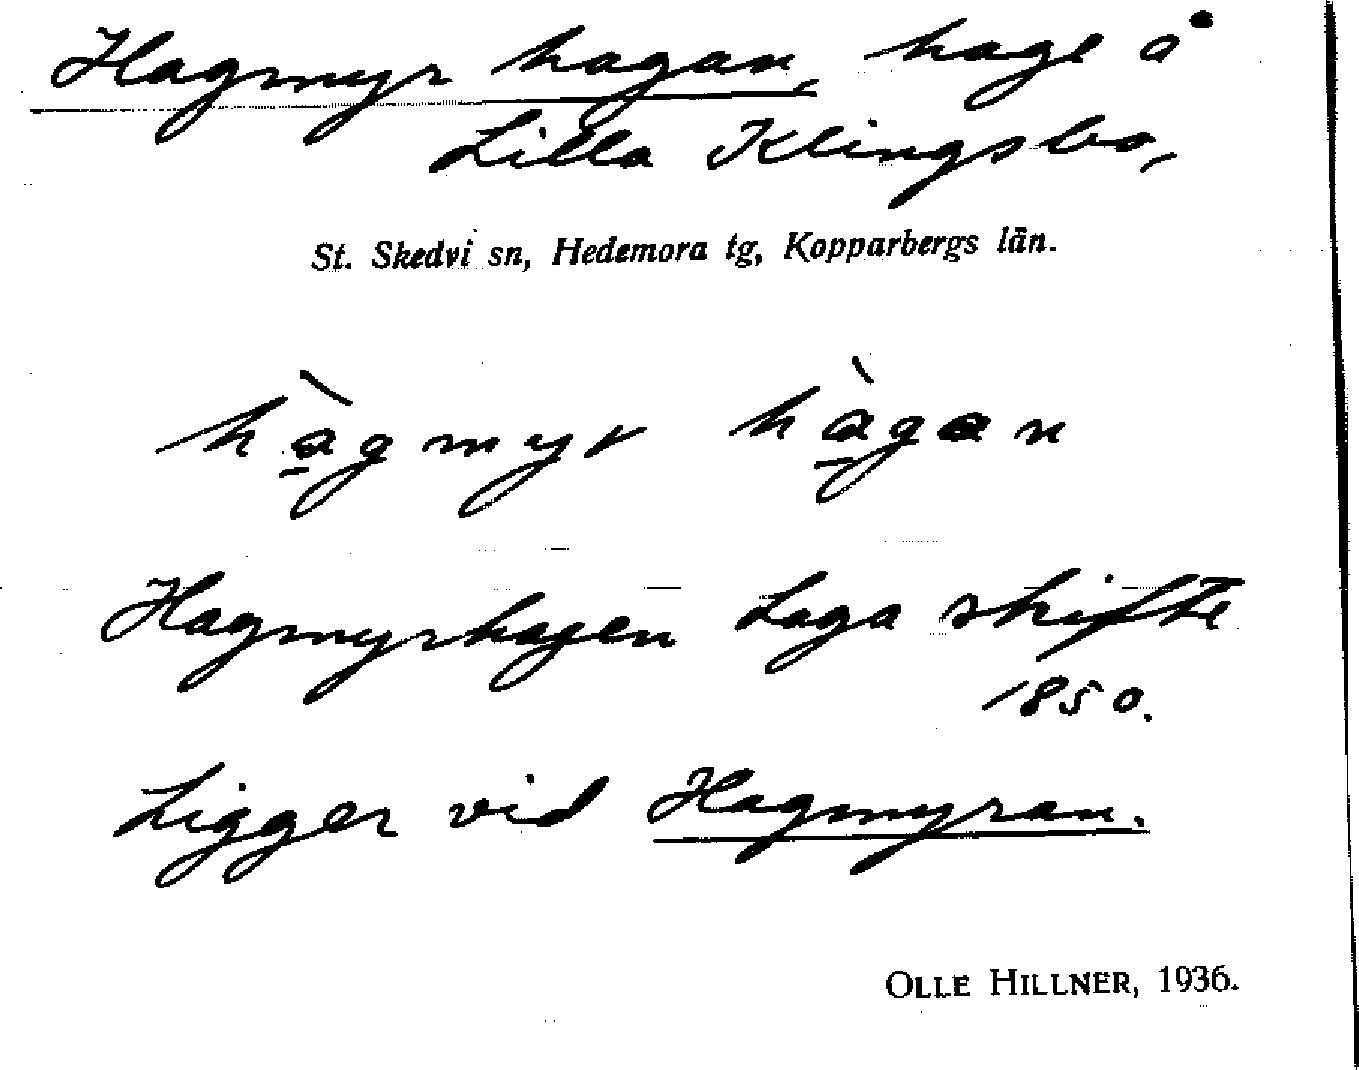 Hagmyr hagan, hage å
Lilla Klingsbo,
St. Skedvi sn, Hedemora tg, Kopparbergs län.
hà̱gmyr hà̱gan
Hagmyrhagen Laga skifte
1850.
Ligger vid Hagmyran.
OLLE HILLNER, 1936.